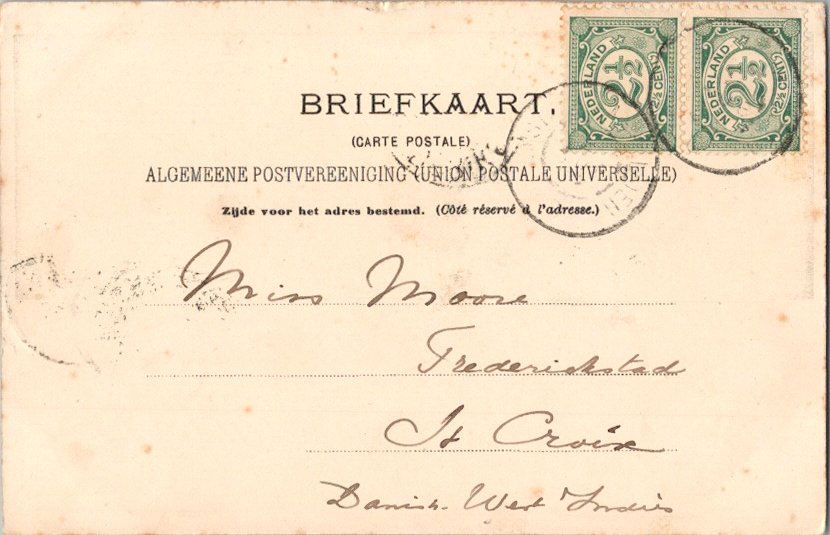 NEDERLAND
2½
(2½ CENT)
NEDERLAND
2½
(2½ CENT)
BRIEFKAART.
(CARTE POSTALE)
ALGEMEENE POSTVEREENIGING (UNION POSTALE UNIVERSELLE)
Zijde voor het adres bestemd. (Côté réservé à l'adresse.)
Miss Moore
Frederickstad
St Croix
Danish West Indies